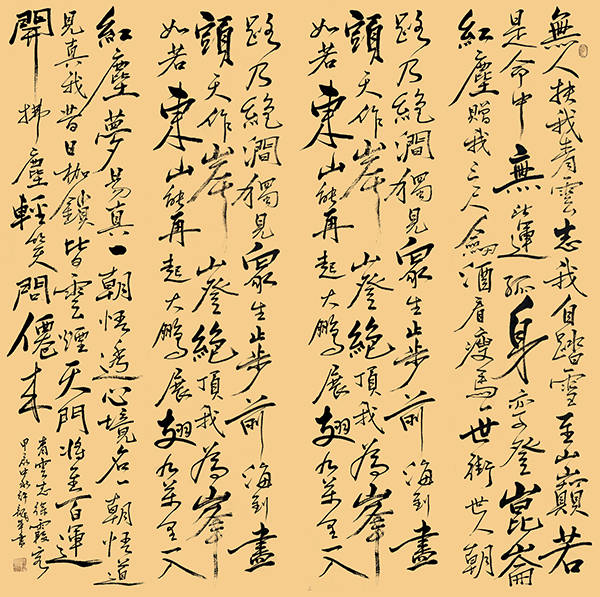 無人扶我青雲志我自踏雪至山巔若
是命中無此運孤身亦登崑崙
紅塵贈我三尺劍酒看瘦馬一世街世人朝
路乃絕澗獨見眾生止步前海到盡
頭天作岸山登絕頂我為峯
如若東山能再起大鵬展翅九萬里一入
路乃絕澗獨見眾生止步前海到盡
頭天作岸山登絕頂我為峯
如若東山能再起大鵬展翅九萬里一入
紅塵夢易真一朝悟透心境名一朝悟道
見真我昔日枷鎖皆雲煙天門將至百運
開拂塵輕笑問僊來
青雲志徐霞客
甲辰中秋許龍軍書